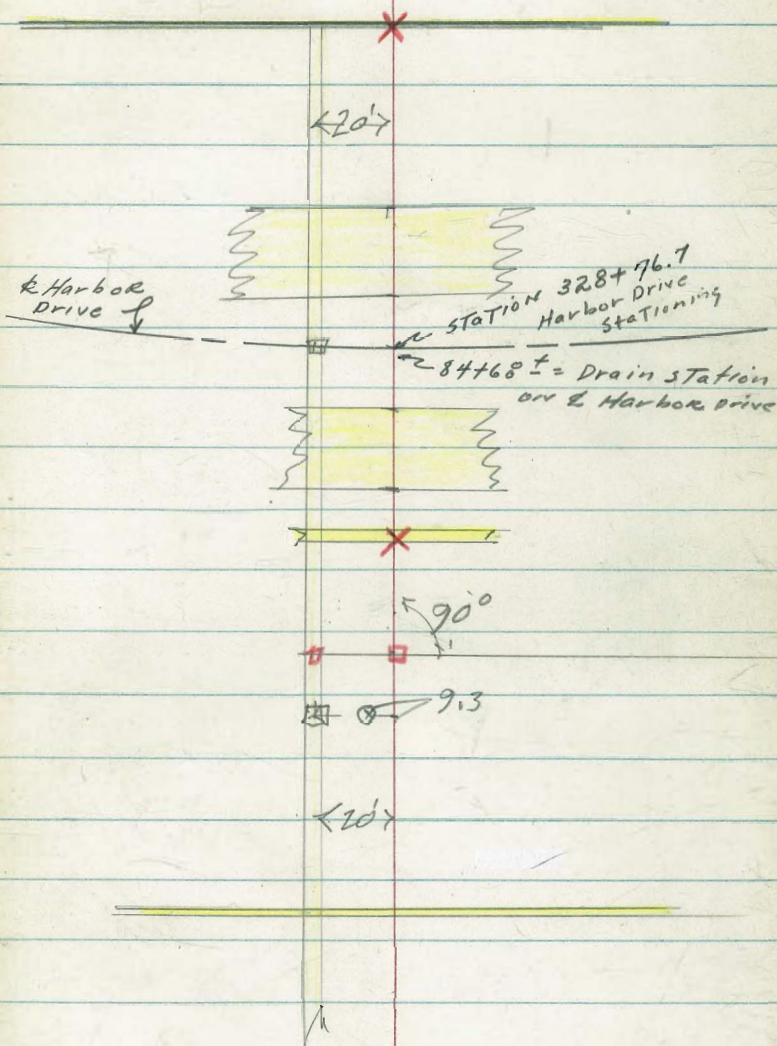 20'
℄ Harbor
Drive
Station 328+76.7
Harbor Drive
Stationing
84+68 ± = Drain Station
on ℄ Harbor Drive
90°
9.3
20'